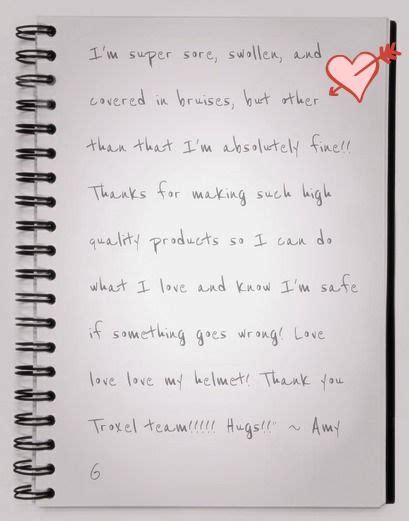 I'm super sore, swollen, and
covered in bruises, but other
than that I'm absolutely fine!!
Thanks for making such high
quality products so I can do
what I love and know I'm safe
if something goes wrong! Love
love love my helmet! Thank you
Troxel team!!!!! Hugs!!" ~ Amy
G